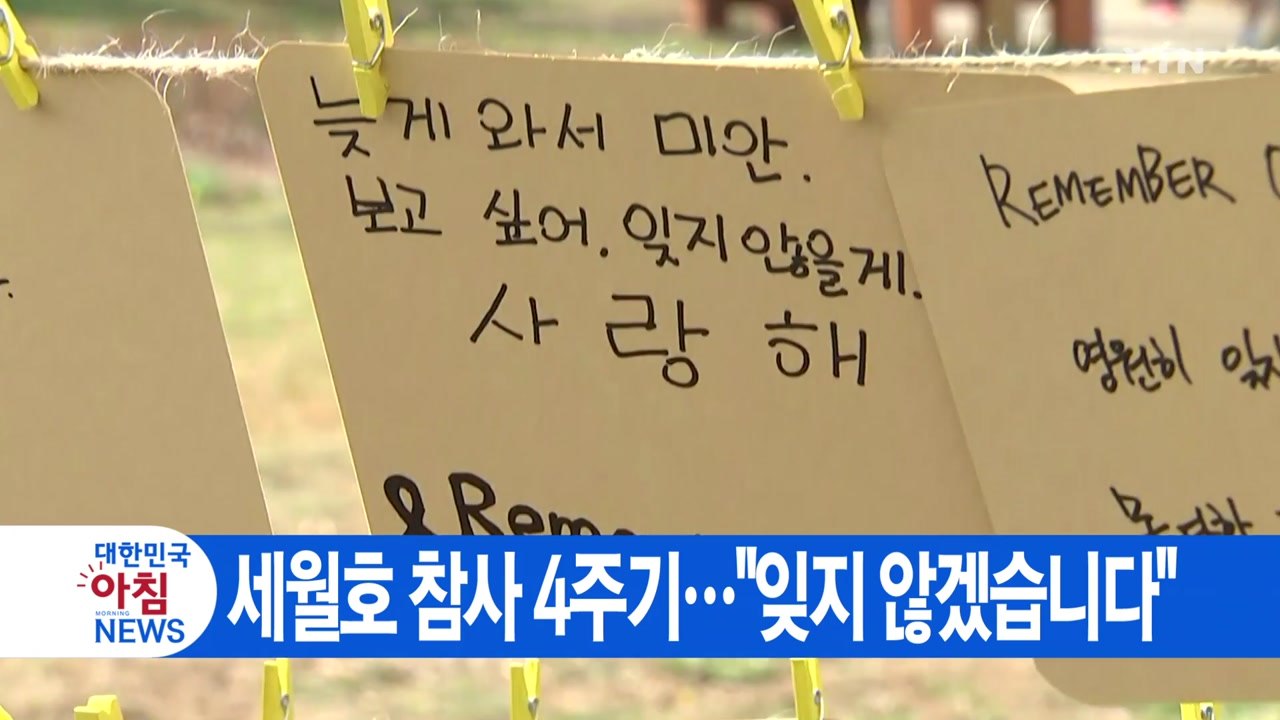 YTN
늦게 와서 미안.
보고 싶어. 잊지 않을게.
사랑해
REMEMBER
영원히
대한민국
아침
MORNING
NEWS
세월호 참사 4주기…"잊지 않겠습니다"